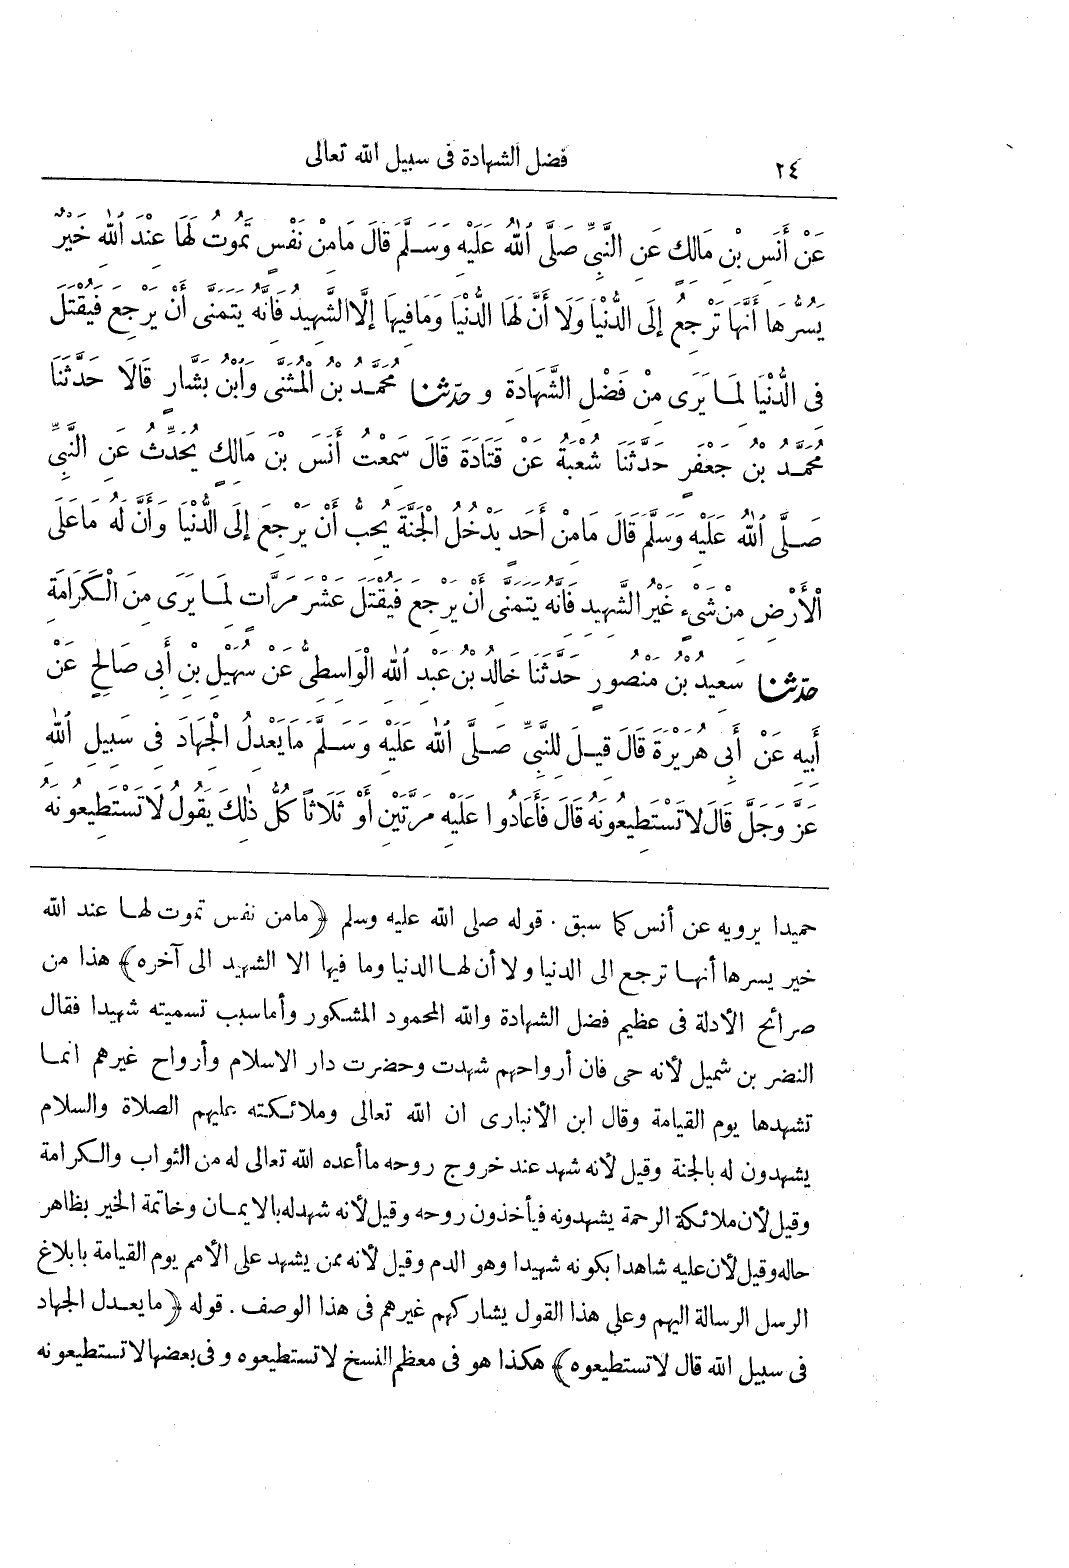 ٢٤ فضل الشهادة فى سبيل الله تعالى
عَنْ أَنَسِ بْنِ مَالِكٍ عَنِ النَّبِيِّ صَلَّى ٱللهُ عَلَيْهِ وَسَلَّمَ قَالَ مَامِنْ نَفْسٍ تَمُوتُ لَهَا عِنْدَ ٱللهِ خَيْرٌ
يَسُرُّهَا أَنَّهَا تَرْجِعُ إِلَى الدُّنْيَا وَلَا أَنَّ لَهَا الدُّنْيَا وَمَافِيهَا إِلَّا الشَّهِيدُ فَانَّهُ يَتَمَنَّى أَنْ يَرْجِعَ فَيُقْتَلَ
فِى الدُّنْيَا لِمَا يَرَى مِنْ فَضْلِ الشَّهَادَةِ و حدّثنا مُحَمَّدُ بْنُ الْمُثَنَّى وَابْنُ بَشَّارٍ قَالَا حَدَّثَنَا
مُحَمَّدُ بْنُ جَعْفَرٍ حَدَّثَنَا شُعْبَةُ عَنْ قَتَادَةَ قَالَ سَمِعْتُ أَنَسَ بْنَ مَالِكٍ يُحَدِّثُ عَنِ النَّبِيِّ
صَلَّى ٱللهُ عَلَيْهِ وَسَلَّمَ قَالَ مَامِنْ أَحَدٍ يَدْخُلُ الْجَنَّةَ يُحِبُّ أَنْ يَرْجِعَ إِلَى الدُّنْيَا وَأَنَّ لَهُ مَاعَلَى
الْأَرْضِ مِنْ شَىْءٍ غَيْرُ الشَّهِيدِ فَانَّهُ يَتَمَنَّى أَنْ يَرْجِعَ فَيُقْتَلَ عَشْرَ مَرَّاتٍ لِمَا يَرَى مِنَ الْكَرَامَةِ
حدّثنا سَعِيدُ بْنُ مَنْصُورٍ حَدَّثَنَا خَالِدُ بْنُ عَبْدِ ٱللهِ الْوَاسِطِىُّ عَنْ سُهَيْلِ بْنِ أَبِى صَالِحٍ عَنْ
أَبِيهِ عَنْ أَبِى هُرَيْرَةَ قَالَ قِيلَ لِلنَّبِيِّ صَلَّى ٱللهُ عَلَيْهِ وَسَلَّمَ مَايَعْدِلُ الْجِهَادَ فِى سَبِيلِ ٱللهِ
عَزَّ وَجَلَّ قَالَ لَا تَسْتَطِيعُونَهُ قَالَ فَأَعَادُوا عَلَيْهِ مَرَّتَيْنِ أَوْ ثَلَاثًا كُلُّ ذٰلِكَ يَقُولُ لَا تَسْتَطِيعُونَهُ
حميدا يرويه عن أنس كما سبق . قوله صلى الله عليه وسلم ﴿مامن نفس تموت لها عند الله
خير يسرها أنها ترجع الى الدنيا ولا أن لها الدنيا وما فيها الا الشهيد الى آخره﴾ هذا من
صرائح الأدلة فى عظيم فضل الشهادة والله المحمود المشكور وأما سبب تسميته شهيدا فقال
النضر بن شميل لأنه حى فان أرواحهم شهدت وحضرت دار الاسلام وأرواح غيرهم انما
تشهدها يوم القيامة وقال ابن الأنبارى ان الله تعالى وملائكته عليهم الصلاة والسلام
يشهدون له بالجنة وقيل لأنه شهد عند خروج روحه ماأعده الله تعالى له من الثواب والكرامة
وقيل لأن ملائكة الرحمة يشهدونه فيأخذون روحه وقيل لأنه شهد له بالايمان وخاتمة الخير بظاهر
حاله وقيل لأن عليه شاهدا بكونه شهيدا وهو الدم وقيل لأنه ممن يشهد على الأمم يوم القيامة بابلاغ
الرسل الرسالة اليهم وعلى هذا القول يشاركهم غيرهم فى هذا الوصف . قوله ﴿مايعدل الجهاد
فى سبيل الله قال لا تستطيعوه﴾ هكذا هو فى معظم النسخ لا تستطيعوه وفى بعضها لا تستطيعونه